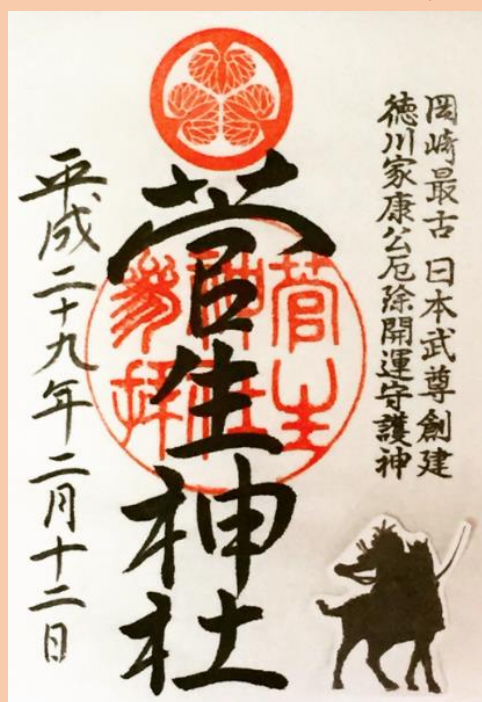 岡崎最古 日本武尊創建
徳川家康公厄除開運守護神
菅生神社
菅生
神社
参拝
平成二十九年二月十二日